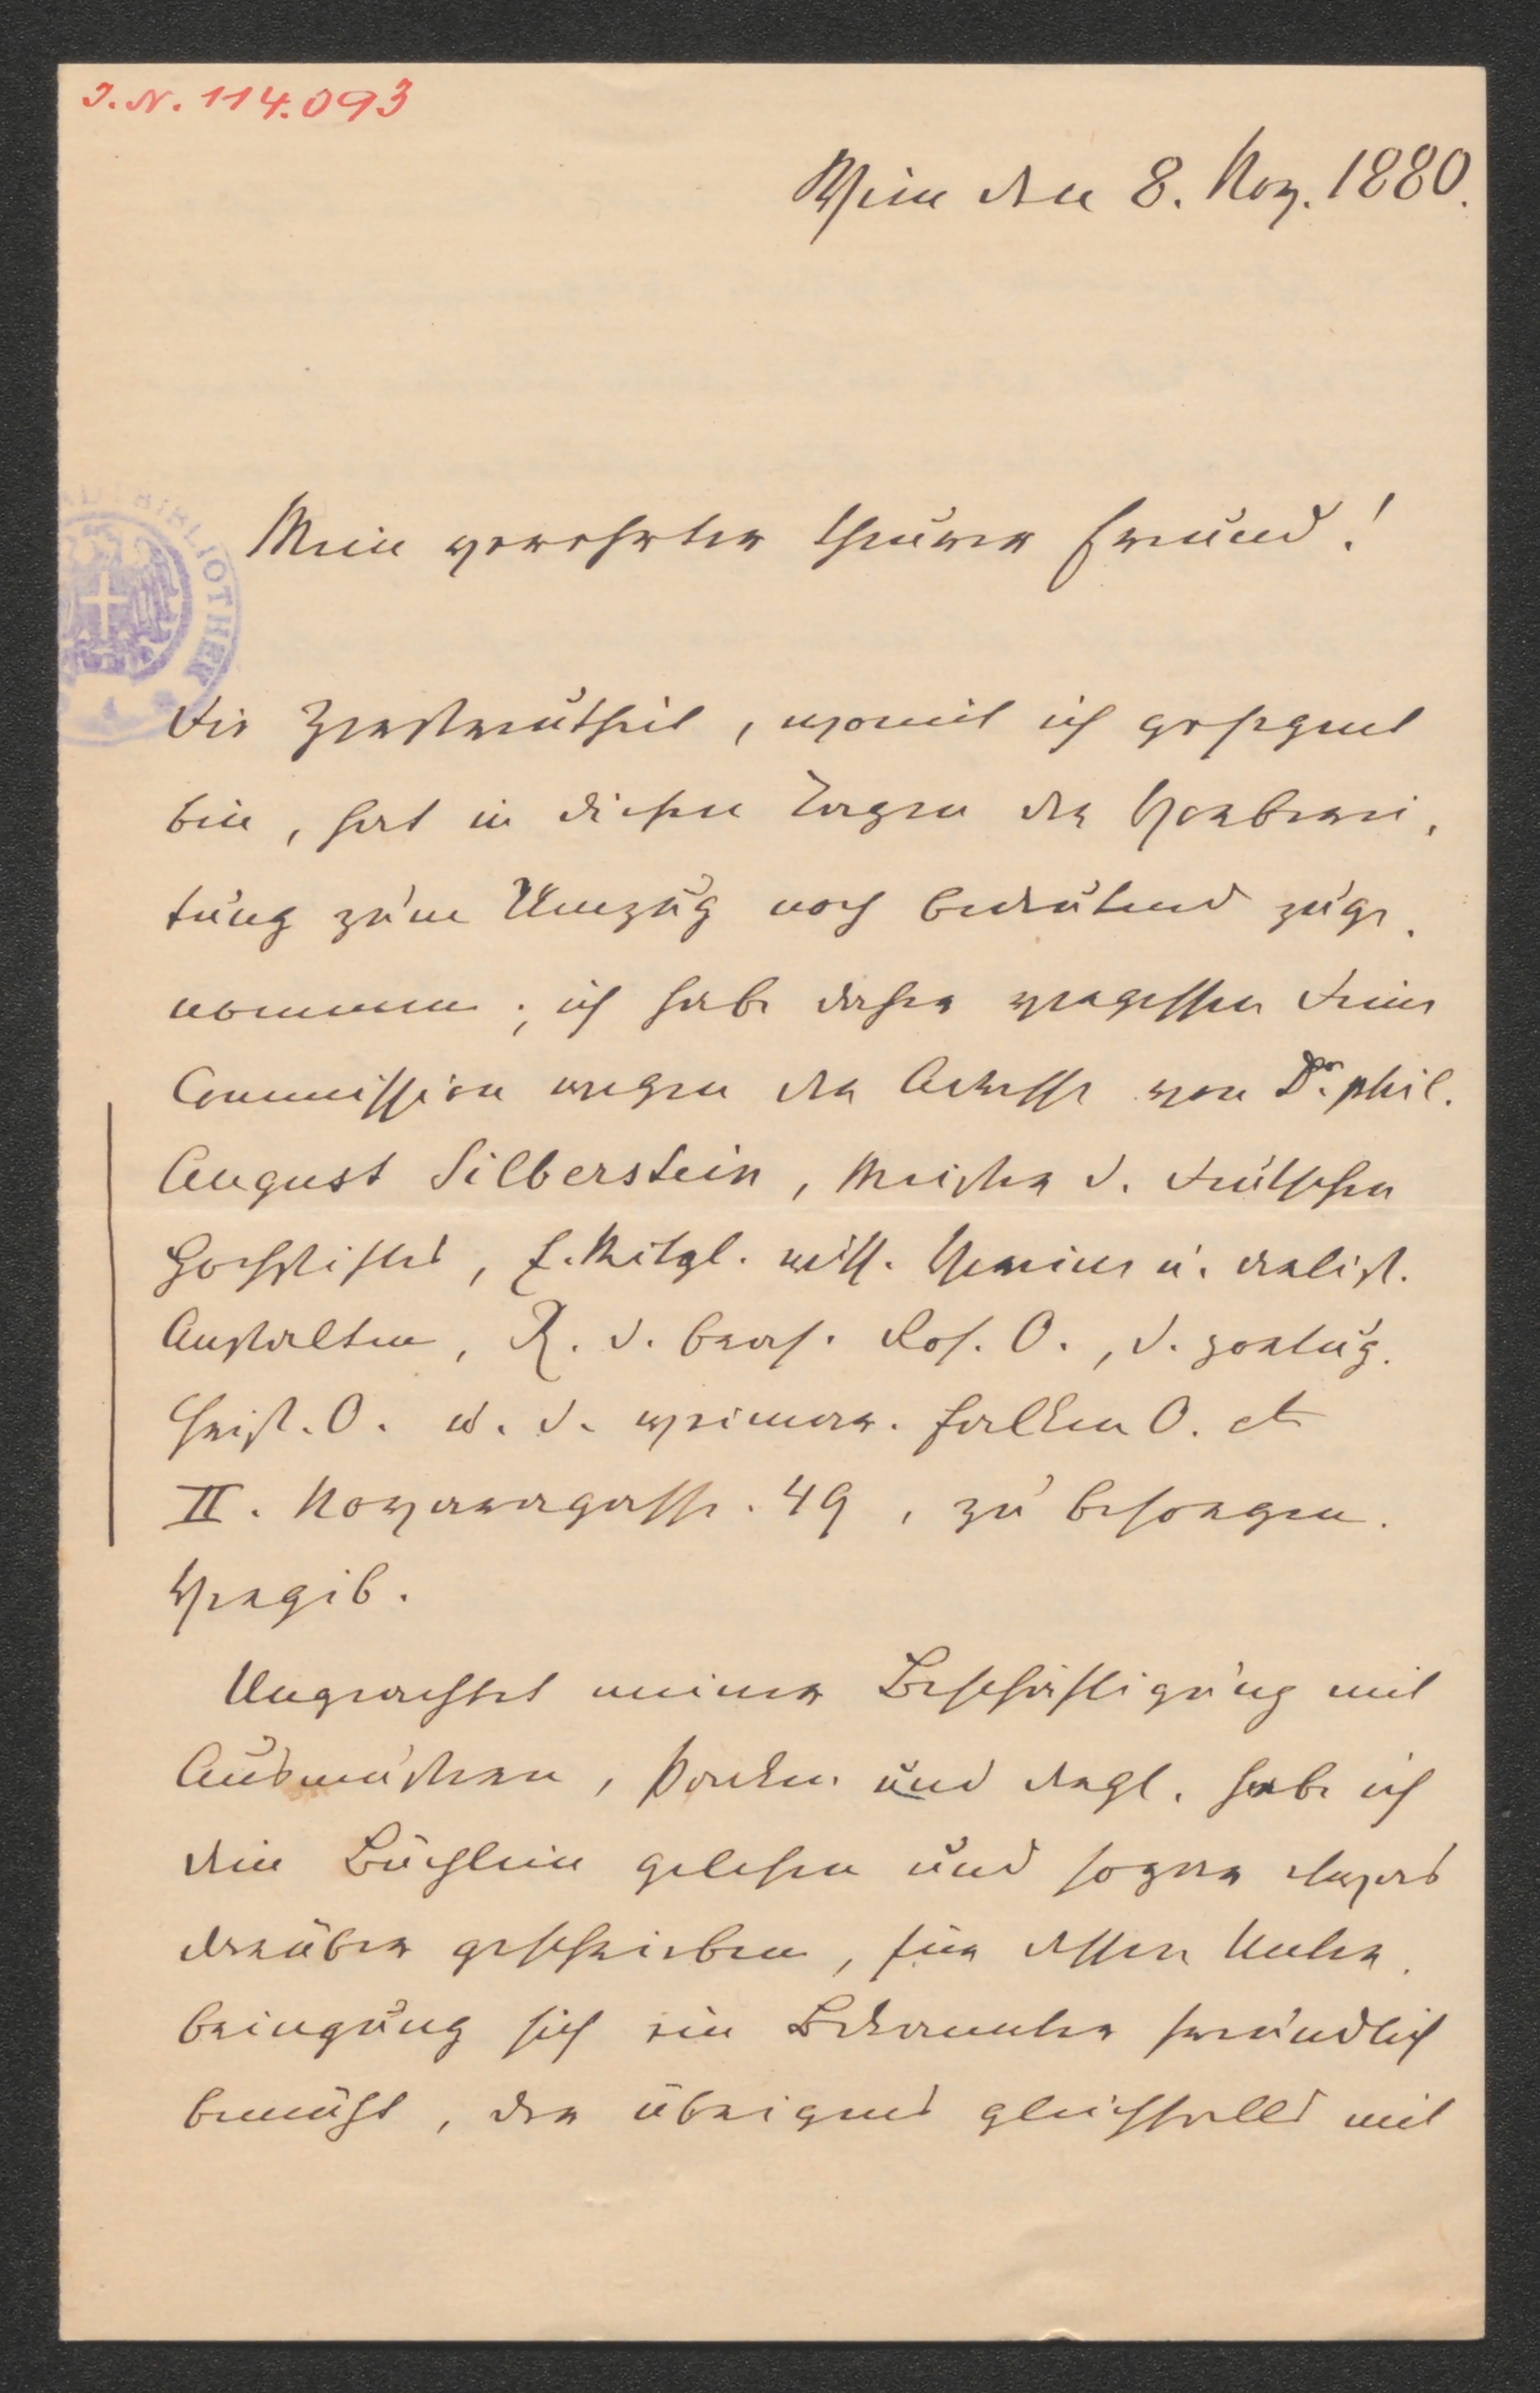 I.N. 114.093
Wien den 8. Nov. 1880.
BIBLIOTHEK
Mein verehrter theurer Freund!
Die Zerstreutheit, womit ich gesegnet
bin, hat in diesen Tagen der Vorberei-
tung zum Umzug noch bedeutend zuge-
nommen; ich habe daher vergessen Deine
Commission wegen der Adresse von Dr. phil.
August Silberstein, Meister d. Deutschen
Hochstiftes, E. Mitgl. wiss. Vereine u. artist.
Anstalten, R. d. bras. Ros. O., d. portug.
Christ. O. u. d. weimar. Falken O. etc
II. Novaragasse. 49, zu besorgen.
Vergib.
Ungeachtet meiner Beschäftigung mit
Ausmustern, Packen und dergl. habe ich
dein Büchlein gelesen und sogar etwas
darüber geschrieben, für dessen Unter-
bringung sich ein Bekannter freundlich
bemüht, der übrigens gleichfalls mit